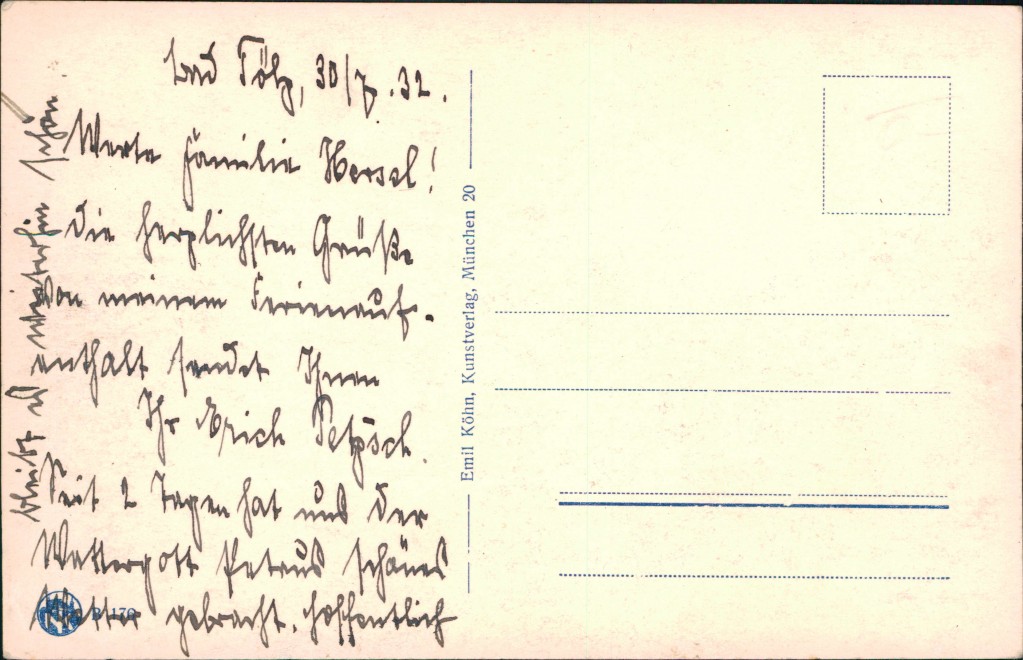 Bad Tölz, 30/7.32.
Werte Familie Hersel!
Die herzlichsten Grüße
von meinem Ferienauf-
enthalt sendet Ihnen
Ihr Erich Petzsch.
Seit 2 Tagen hat uns der
Wettergott Petrus schönes
Wetter gebracht. Hoffentlich
bleibt es weiterhin schön
Emil Köhn, Kunstverlag, München 20